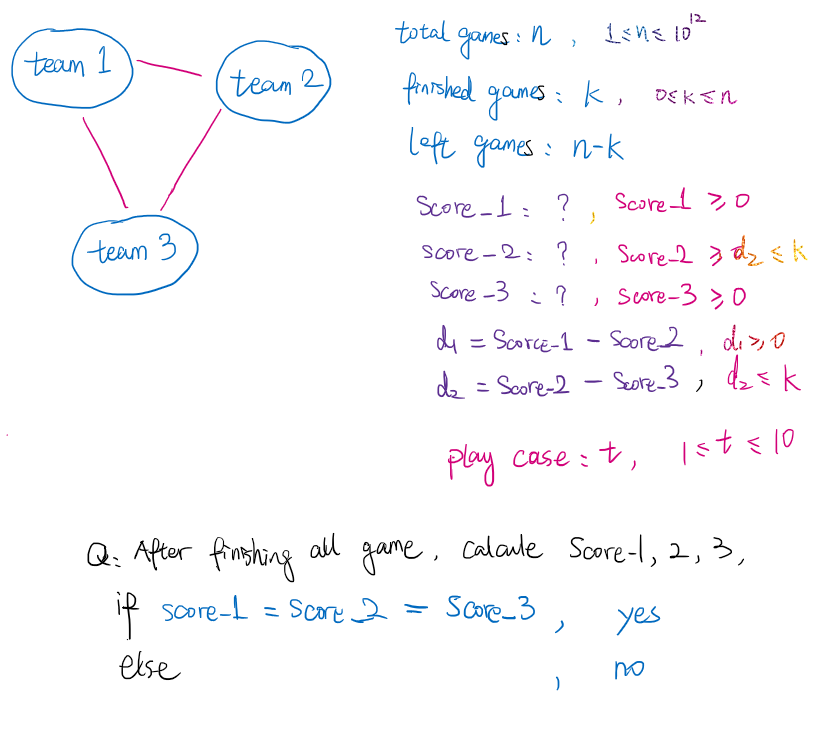 team 1
team 2
team 3
total games: n , 1 ≤ n ≤ 10^12
finished games: k , 0 ≤ k ≤ n
left games: n-k
Score_1: ? , Score_1 ≥ 0
score-2: ? , Score_2 ≥ d2 ≤ k
Score-3 : ? , score-3 ≥ 0
d1 = Score-1 - Score_2 , d1 ≥ 0
d2 = Score-2 - Score_3 , d2 ≤ k
play case: t, 1 ≤ t ≤ 10
Q: After finishing all game, calculte Score-1, 2, 3,
if score_1 = Score_2 = Score_3 , yes
else , no